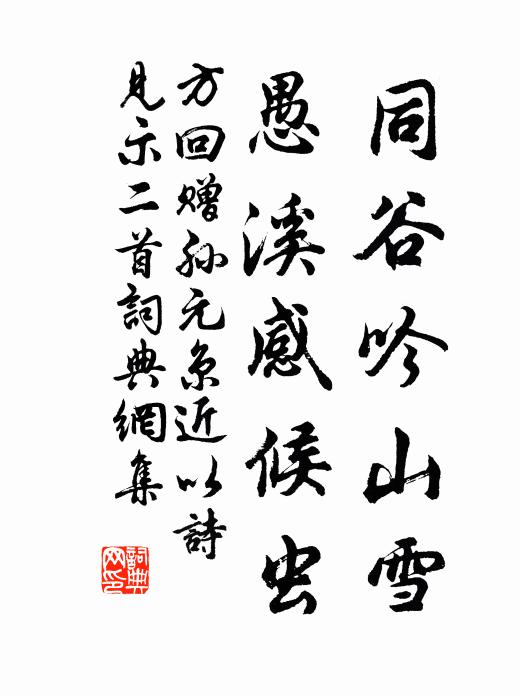 同谷吟山雪
愚溪感候虫
方回赠孙元京近以詩
見示二首詞典網集
詞典网印